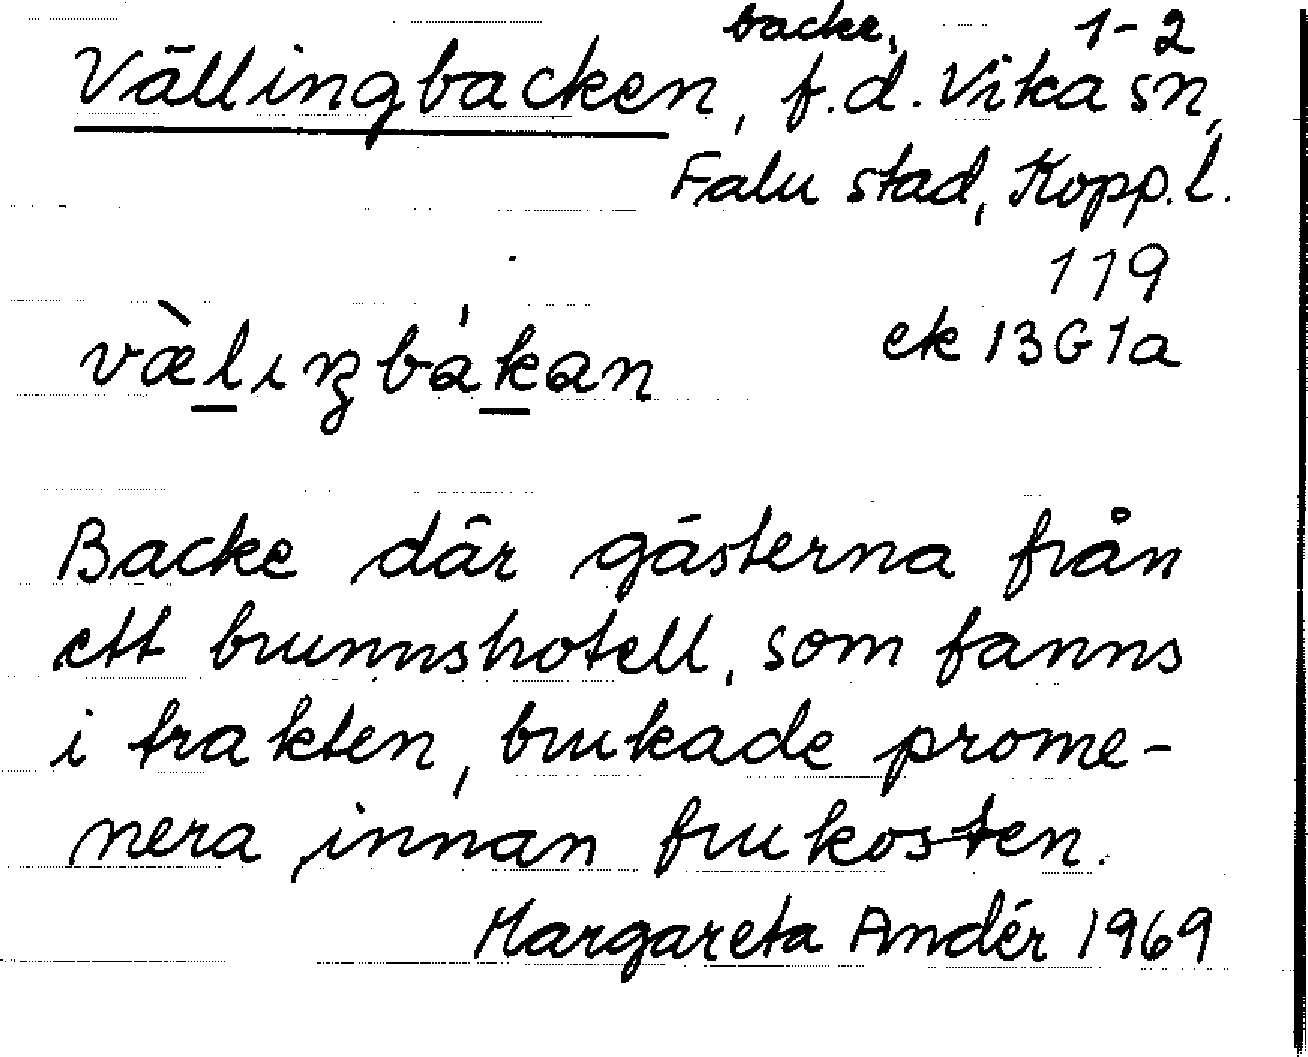 backe, 1-2
Vällingbacken, f.d. Vika sn,
Falu stad, Kopp. l.
119
væ̀lıŋbákan ek 13G1a
Backe där gästerna från
ett brunnshotell, som fanns
i trakten, brukade prome-
nera, innan frukosten.
Margareta Andér 1969